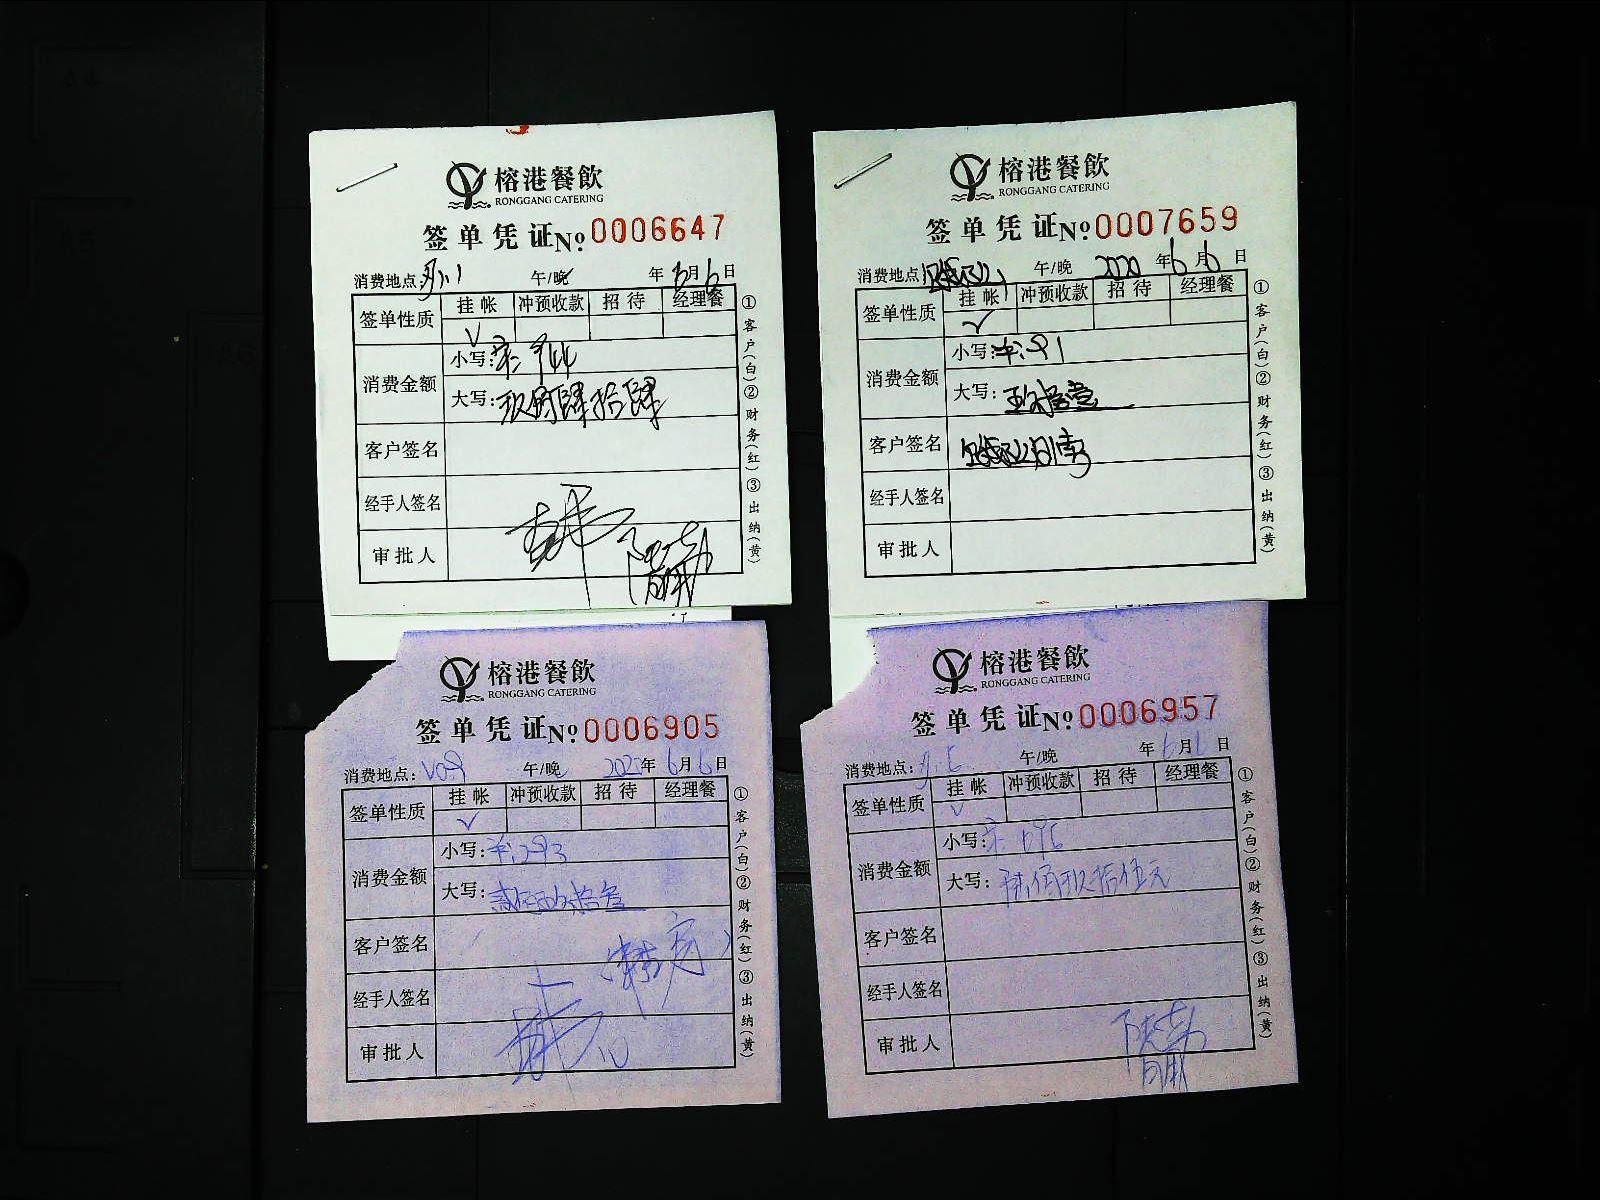 榕港餐飲
RONGGANG CATERING
签单凭证 № 0006647
消费地点: 午/晚 年 6月6日
签单性质 挂帐 冲预收款 招待 经理餐
√
消费金额 小写: 944
大写: 玖佰肆拾肆
客户签名
经手人签名
审批人
①客户(白)②财务(红)③出纳(黄)
榕港餐飲
RONGGANG CATERING
签单凭证 № 0007659
消费地点: 午/晚 2020年6月6日
签单性质 挂帐 冲预收款 招待 经理餐
√
消费金额 小写: 91
大写: 玖拾壹
客户签名
经手人签名
审批人
①客户(白)②财务(红)③出纳(黄)
榕港餐飲
RONGGANG CATERING
签单凭证 № 0006905
消费地点: V09 午/晚 2020年6月6日
签单性质 挂帐 冲预收款 招待 经理餐
√
消费金额 小写: 293
大写: 贰佰玖拾叁
客户签名
经手人签名
审批人
①客户(白)②财务(红)③出纳(黄)
榕港餐飲
RONGGANG CATERING
签单凭证 № 0006957
消费地点: 午/晚 年6月6日
签单性质 挂帐 冲预收款 招待 经理餐
√
消费金额 小写:
大写: 佰玖拾伍元
客户签名
经手人签名
审批人
①客户(白)②财务(红)③出纳(黄)